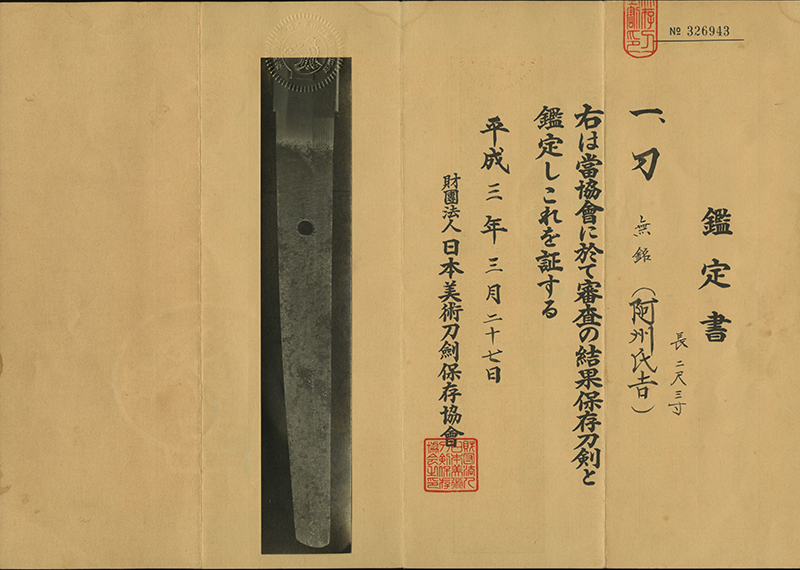 № 326943
鑑定書
一、刀
無銘（阿州氏吉）
長二尺三寸
右は當協會に於て審査の結果保存刀剣と
鑑定しこれを証する
平成三年三月二十七日
財團法人日本美術刀劍保存協會